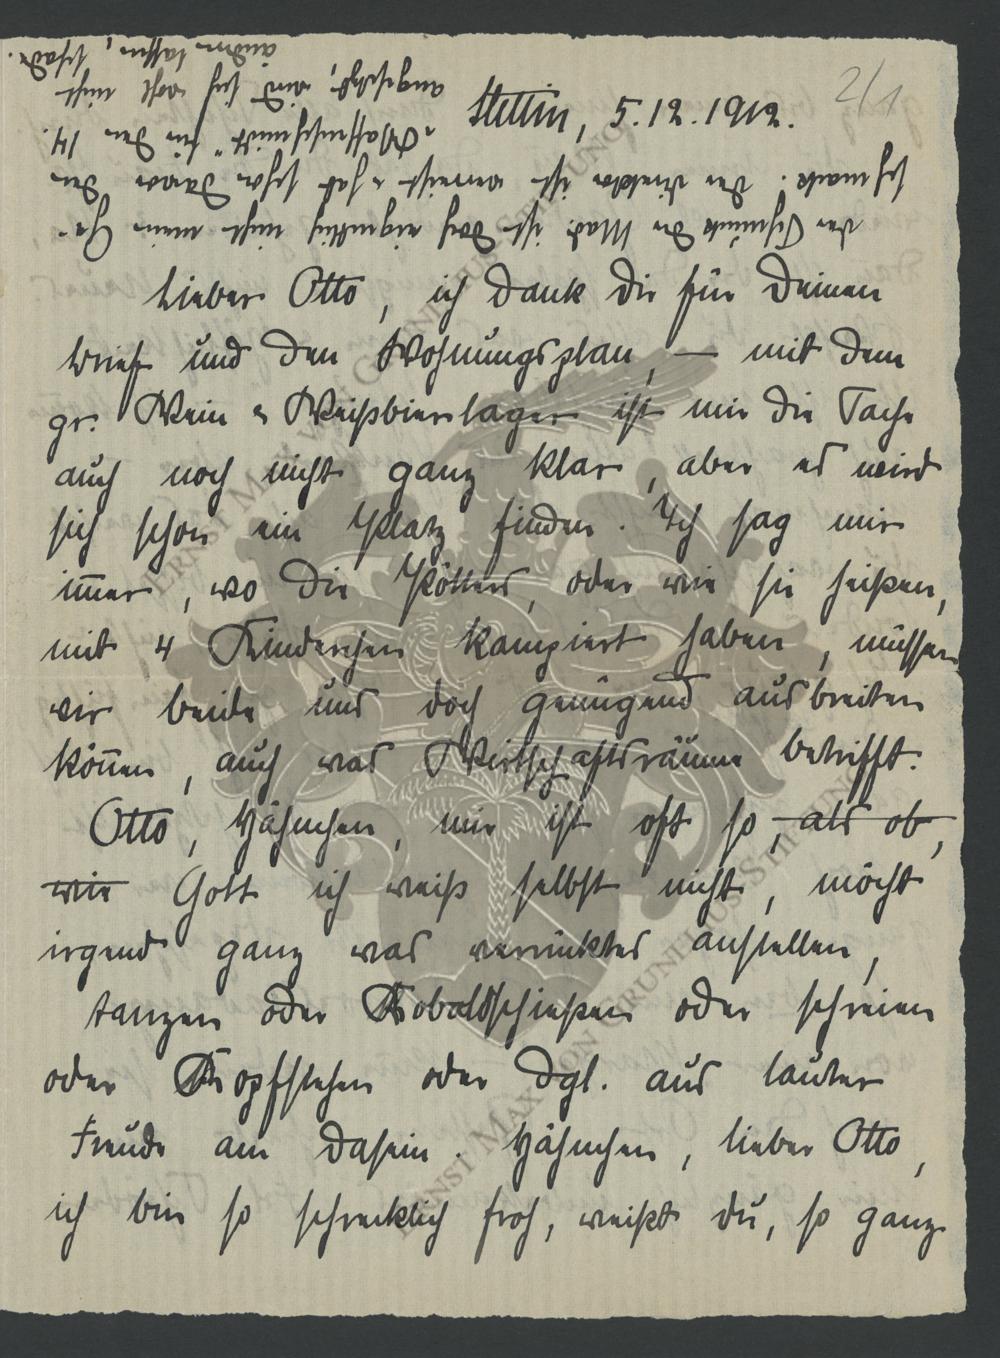 2/1
Stettin, 5.12.1912.
der Schmiede der Mad. ist doch eigentlich nicht mein Ge-
schmack. Der Direktor ist verreist & hat schon davor den
"Waffenschmidt" für den 14.
angesetzt, wird sich wohl nicht
ändern lassen, schade.
Lieber Otto, ich dank Dir für Deinen
Brief und den Wohnungsplan, — mit dem
gr. Wein & Weißbierlager ist mir die Sache
auch noch nicht ganz klar, aber es wird
sich schon ein Platz finden. Ich sag mir
immer, wo die Kötters, oder wie sie heißen,
mit 4 Kinderchen kampiert haben, müssen
wir beide uns doch genügend ausbreiten
können, auch was Wirtschaftsräume betrifft.
Otto, Hähnchen, mir ist oft so, als ob,
wie Gott ich weiß selbst nicht, möcht
irgend ganz was verrücktes anstellen,
tanzen oder Koboldschießen oder schreien
oder Kopfstehen oder dgl. aus lauter
Freude am Dasein. Hähnchen, lieber Otto,
ich bin so schrecklich froh, weißt du, so ganz